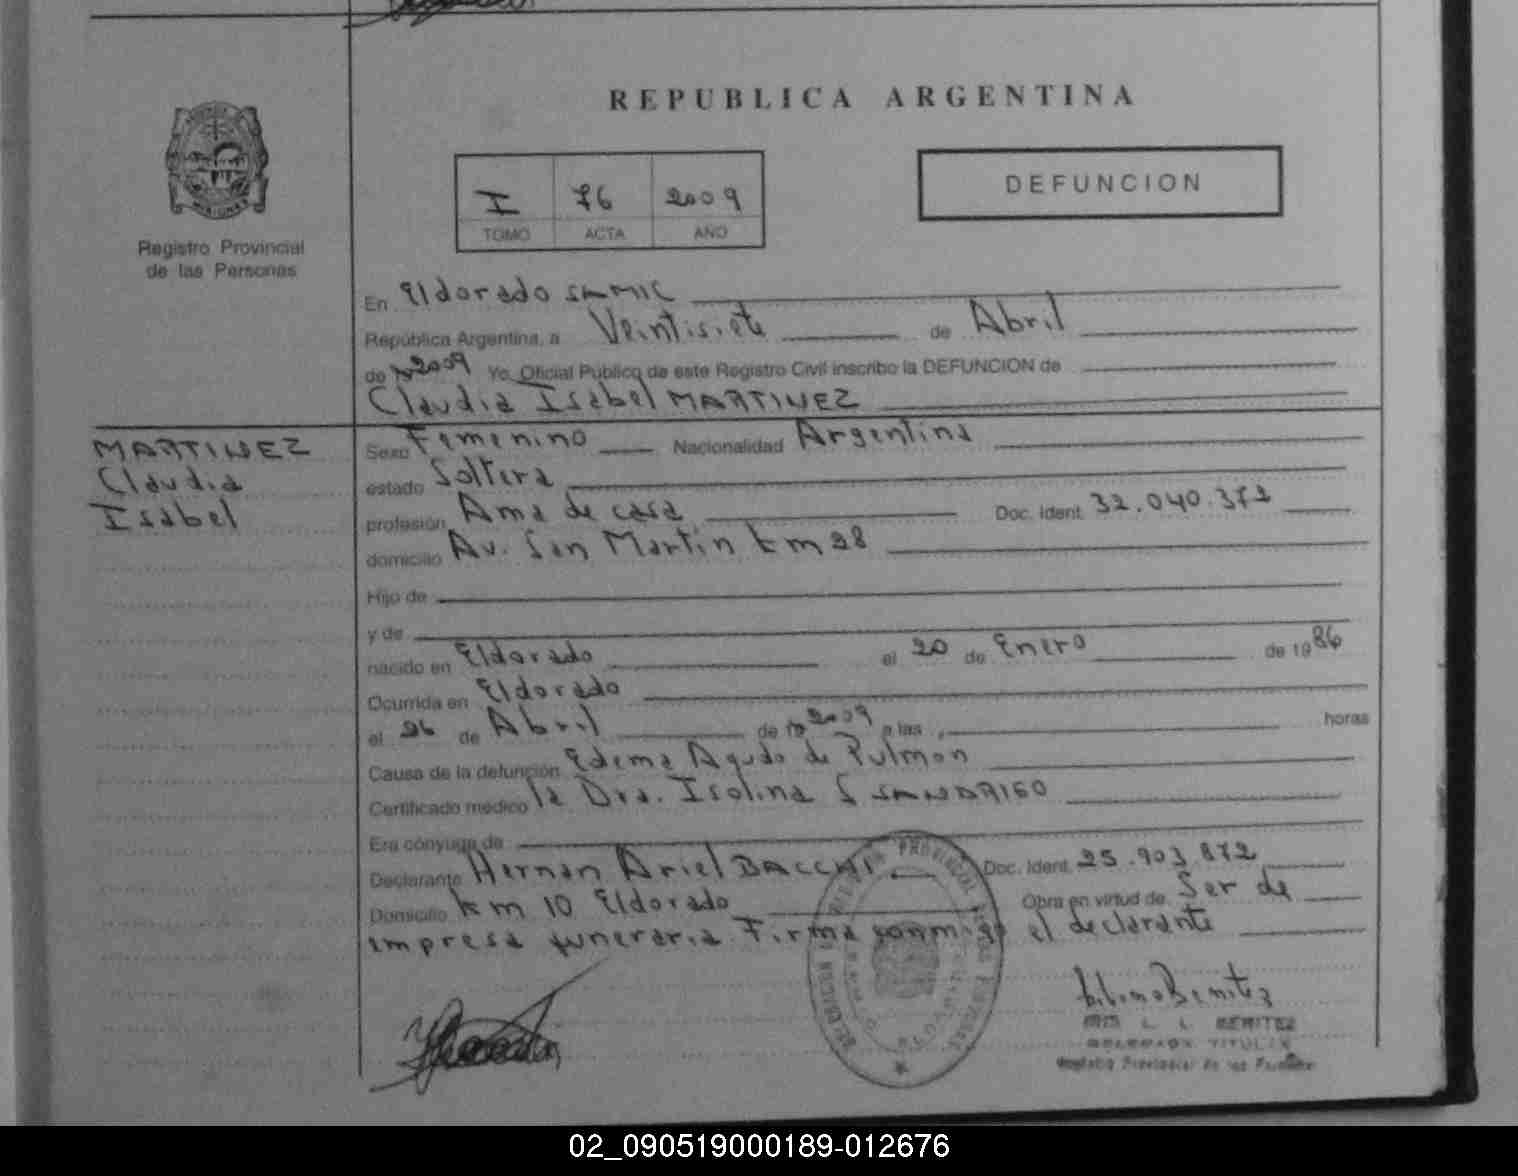 REPUBLICA ARGENTINA
DEFUNCION
I 76 2009
TOMO ACTA AÑO
MISIONES
Registro Provincial
de las Personas
En Eldorado SAMIC
República Argentina, a Veintisiete de Abril
de 2009 Yo, Oficial Público de este Registro Civil inscribo la DEFUNCION de
Claudia Isabel MARTINEZ
MARTINEZ
Claudia
Isabel
Sexo Femenino Nacionalidad Argentina
estado Soltera
profesión Ama de casa Doc. Ident. 32.040.372
domicilio Av. San Martin km 28
Hijo de
y de
nacido en Eldorado el 20 de Enero de 1986
Ocurrida en Eldorado
el 26 de Abril de 2009 a las horas
Causa de la defunción Edema Agudo de Pulmon
Certificado médico la Dra. Isolina S SANABRIGO
Era cónyuge de
Declarante Hernan Ariel BACCHI Doc. Ident. 25.903.872
Domicilio km 10 Eldorado Obra en virtud de Ser de
empresa funeraria. Firma conmigo el declarante
L. L. BENITEZ
DELEGADA TITULAR
Registro Provincial de las Personas
02_090519000189-012676